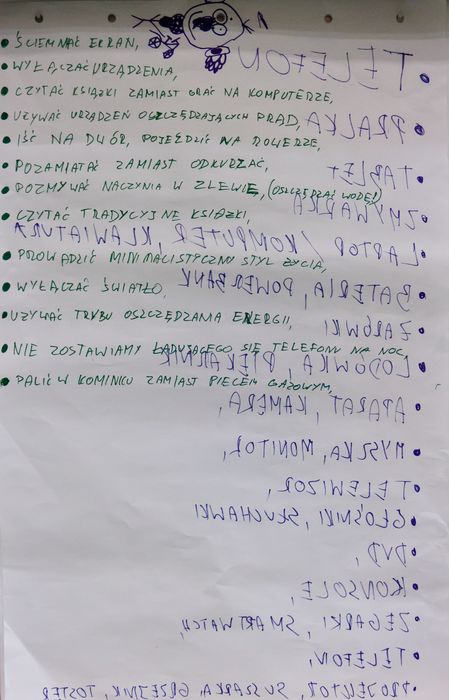 • ŚCIEMNIAĆ EKRAN,
• WYŁĄCZAĆ URZĄDZENIA,
• CZYTAĆ KSIĄŻKI ZAMIAST GRAĆ NA KOMPUTERZE,
• UŻYWAĆ URZĄDZEŃ OSZCZĘDZAJĄCYCH PRĄD,
• IŚĆ NA DWÓR, POJEŹDZIĆ NA ROWERZE,
• POZAMIATAĆ ZAMIAST ODKURZAĆ,
• POZMYWAĆ NACZYNIA W ZLEWIE, (OSZCZĘDZAJ WODĘ!)
• CZYTAĆ TRADYCYJNE KSIĄŻKI,
• PROWADZIĆ MINIMALISTYCZNY STYL ŻYCIA,
• WYŁĄCZAĆ ŚWIATŁO,
• UŻYWAĆ TRYBU OSZCZĘDZANIA ENERGII,
• NIE ZOSTAWIAMY ŁADUJĄCEGO SIĘ TELEFONU NA NOC,
• PALIĆ W KOMINKU ZAMIAST PIECEM GAZOWYM,
• TELEFON
• PRALKA
• TABLET
• ZMYWARKA
• LAPTOP / KOMPUTER, KLAWIATURA
• BATERIA, POWERBANK
• ŻARÓWKI
• LODÓWKA, PIEKARNIK
• APARAT, KAMERA,
• MYSZKA, MONITOR,
• TELEWIZOR,
• GŁOŚNIKI, SŁUCHAWKI
• DVD,
• KONSOLE,
• ZEGARKI, SMARTWATCH,
• TELEFON,
SUSZARKA, GRZEJNIK, TOSTER